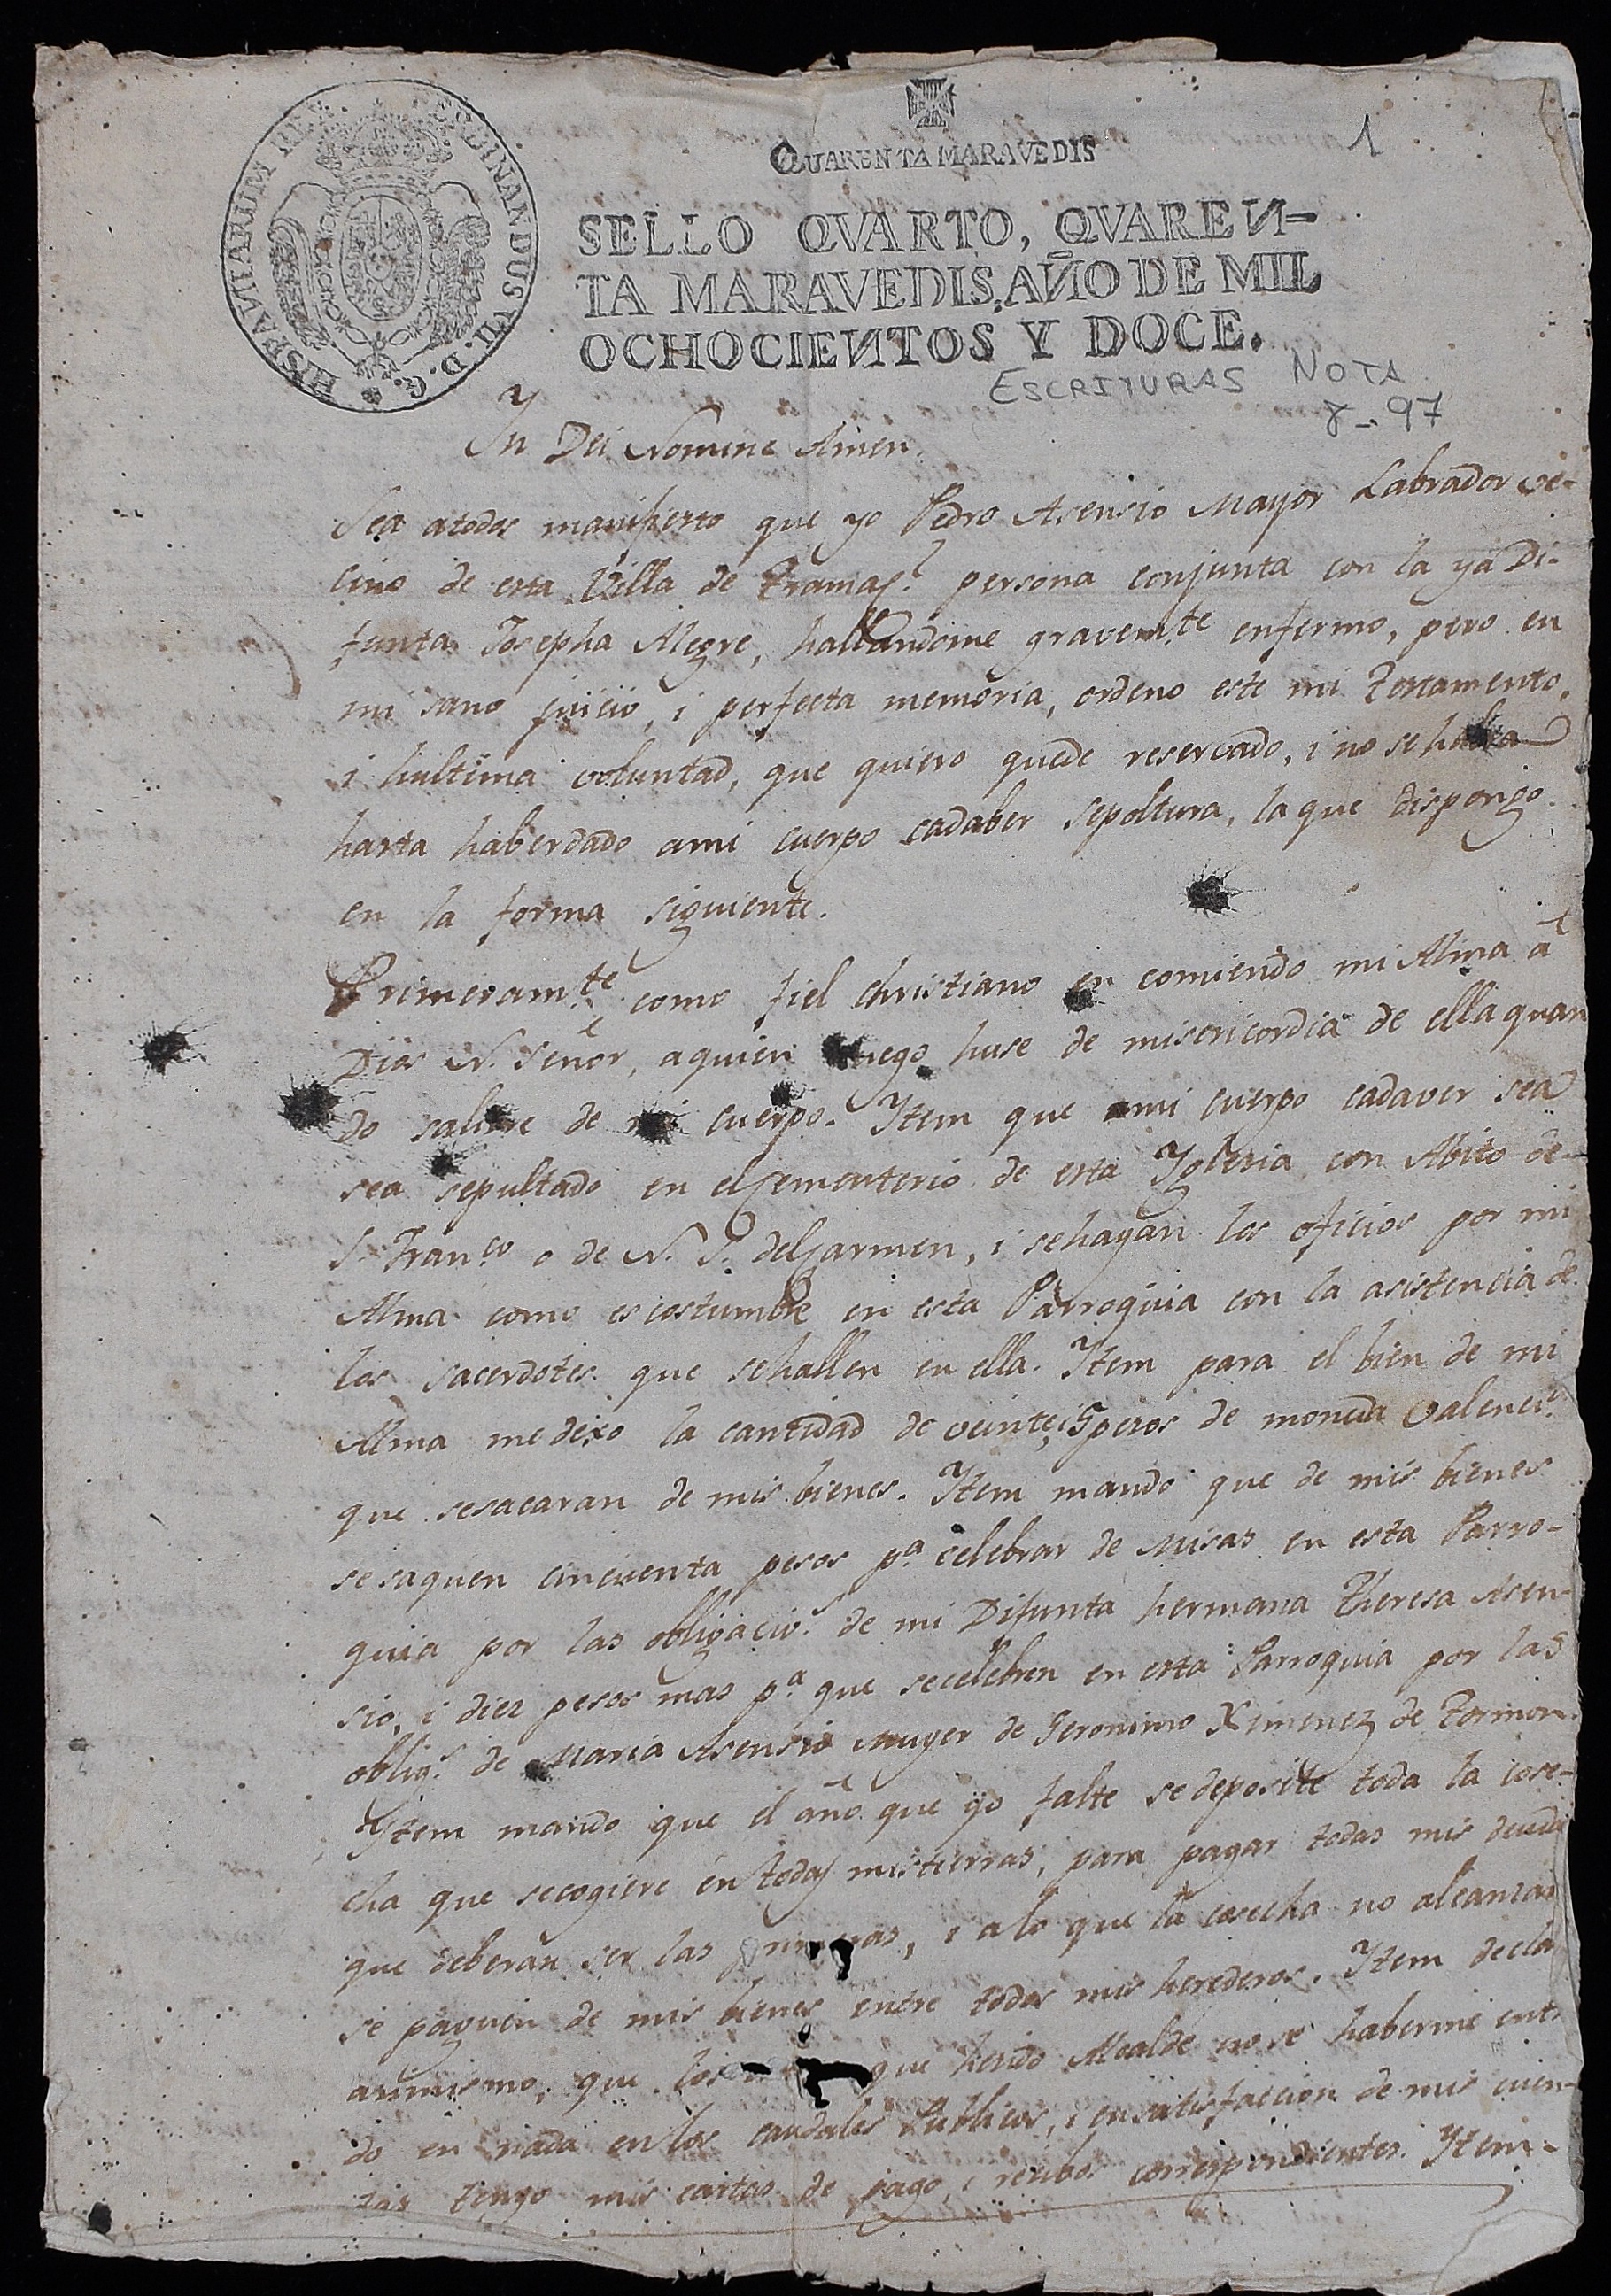 FERDINANDUS VII. D. G. HISPANIARUM REX
1
QUARENTA MARAVEDIS
SELLO QVARTO, QVAREN-
TA MARAVEDIS, AÑO DE MIL
OCHOCIENTOS Y DOCE.
ESCRITURAS NOTA
8-97
Yn Dei Nomine Amen.
Sea atodos manifiesto que yo Pedro Asensio Mayor Labrador ve-
cino de esta Villa de persona conjunta con la ya Di-
funta Josepha Alegre, hallandome gravem.te enfermo, pero en
mi sano juicio, i perfecta memoria, ordeno este mi Testamento,
i hultima voluntad, que quiero quede reservado, i no se habra
hasta haberdado ami cuerpo cadaber sepoltura, la que dispongo
en la forma siguiente.
Primeram.te como fiel christiano en comiendo mi Alma â
Dios N. Señor, aquien ruego huse de misericordia de ella quan
do saliere de mi cuerpo. Ytem que mi cuerpo cadaver sea
sea sepultado en el Cementerio de esta Yglesia con Abito de-
S. Fran.co o de N. S. del Carmen, i sehagan los oficios por mi
Alma como es costumbre en esta Parroquia con la asistencia de
los sacerdotes que sehallen en ella. Ytem para el bien de mi
Alma medexo la cantidad de veinte, i 5 pesos de moneda Valenci.ª
que sesacaran de mis bienes. Ytem mando que de mis bienes
sesaquen cincuenta pesos p.a celebrar de Misas en esta Parro-
quia por las obligacio.s de mi Difunta hermana Theresa Asen-
sio, i diez pesos mas p.a que secelebren en esta Parroquia por las
oblig.s de Maria Asensio Muger de Geronimo Ximenez de Tormon.
Ytem mando que el año que yo falte sedeposite toda la cose-
cha que secogiere en todas mistierras, para pagar todas mis deudas
que deberan ser las primeras, i alo que la cosecha no alcanzare
se paguen de mis bienes entre todos mis herederos. Ytem decla
asimismo, que los que hesido Alcalde no se haberme entr
do en nada en los caudales Publicos, i en satisfaccion de mis cuen-
tas tengo mis cartas de pago, i recibos correspondientes. Ytem-